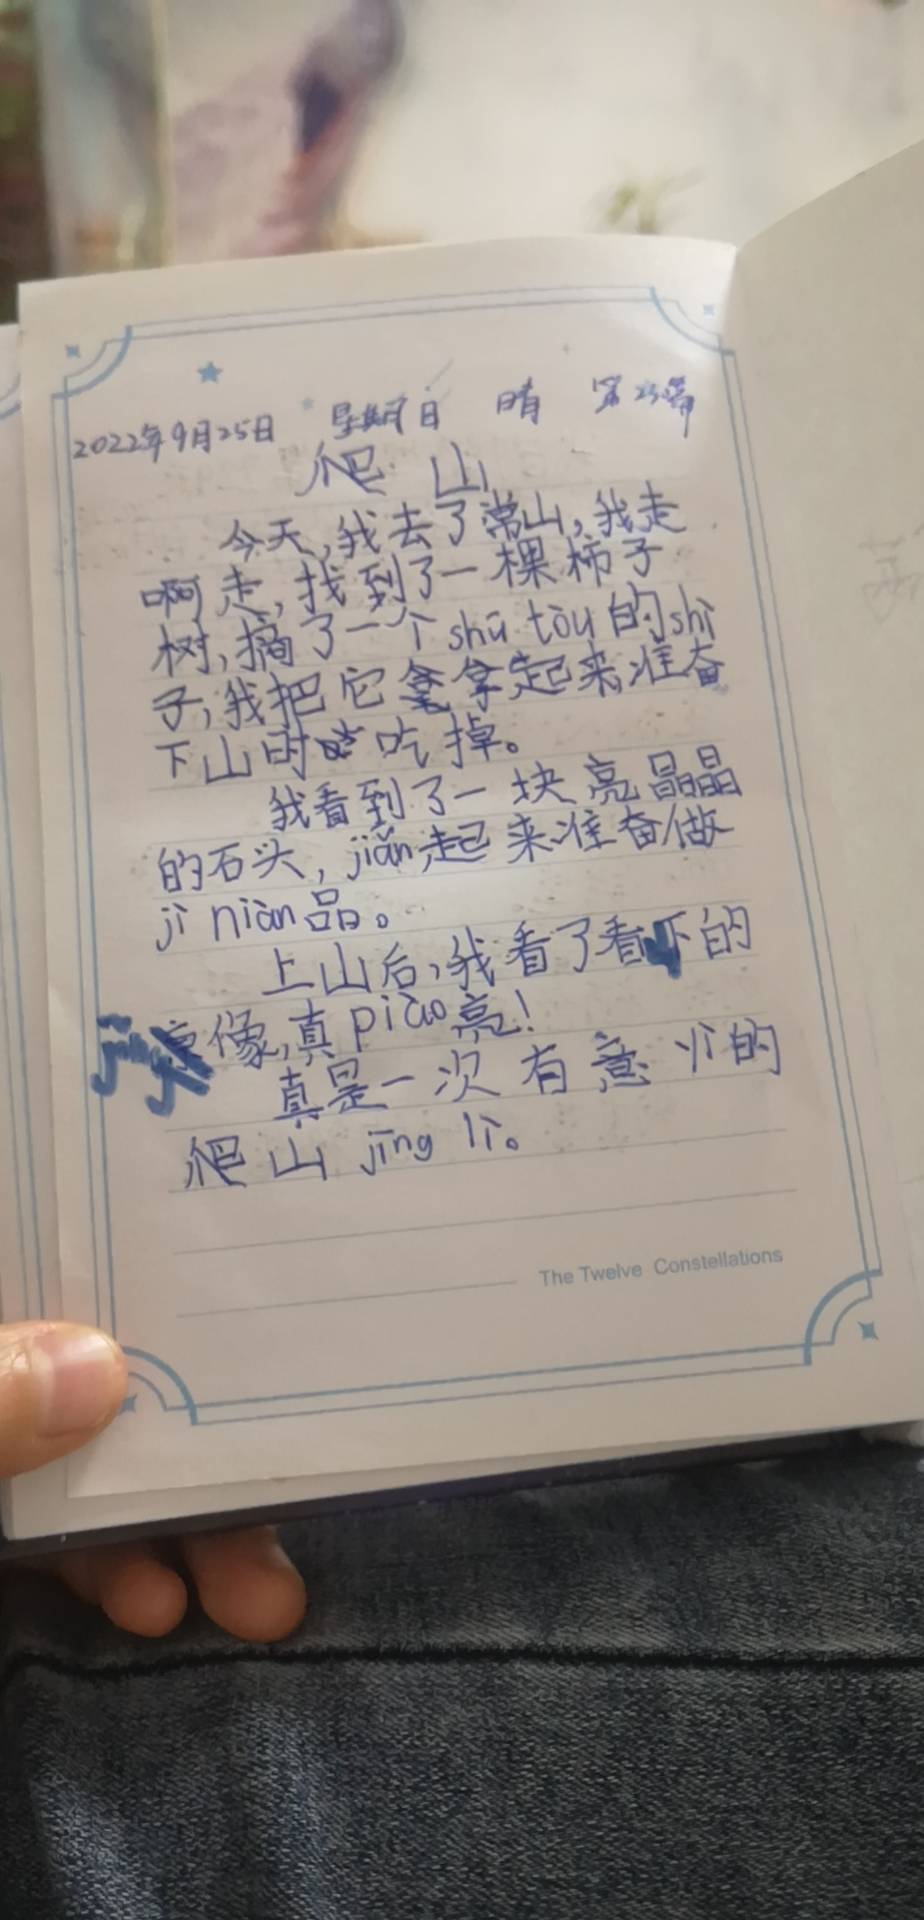 2022年9月25日 星期日 晴 第23篇
爬山
今天,我去了常山,我走
啊走,找到了一棵柿子
树,摘了一个shū tòu的shì
子,我把它拿起来,准奋
下山时吃掉。
我看到了一块亮晶晶
的石头,jiǎn起来准奋做
jì niàn品。
上山后,我看了看下的
像,真piào亮!
真是一次有意的
爬山jīng lì。
The Twelve Constellations